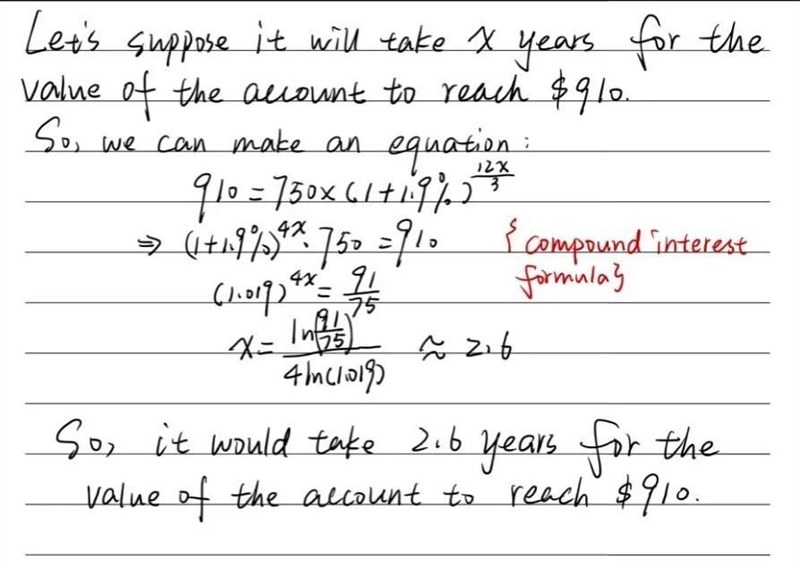 Let's suppose it will take x years for the
value of the account to reach $910.
So, we can make an equation:
910 = 750×(1+1.9%)^(12x/3)
⇒ (1+1.9%)^4x · 750 = 910
{compound interest
formula}
(1.019)^4x = 91/75
x = ln(91/75) / 4ln(1.019) ≈ 2.6
So, it would take 2.6 years for the
value of the account to reach $910.